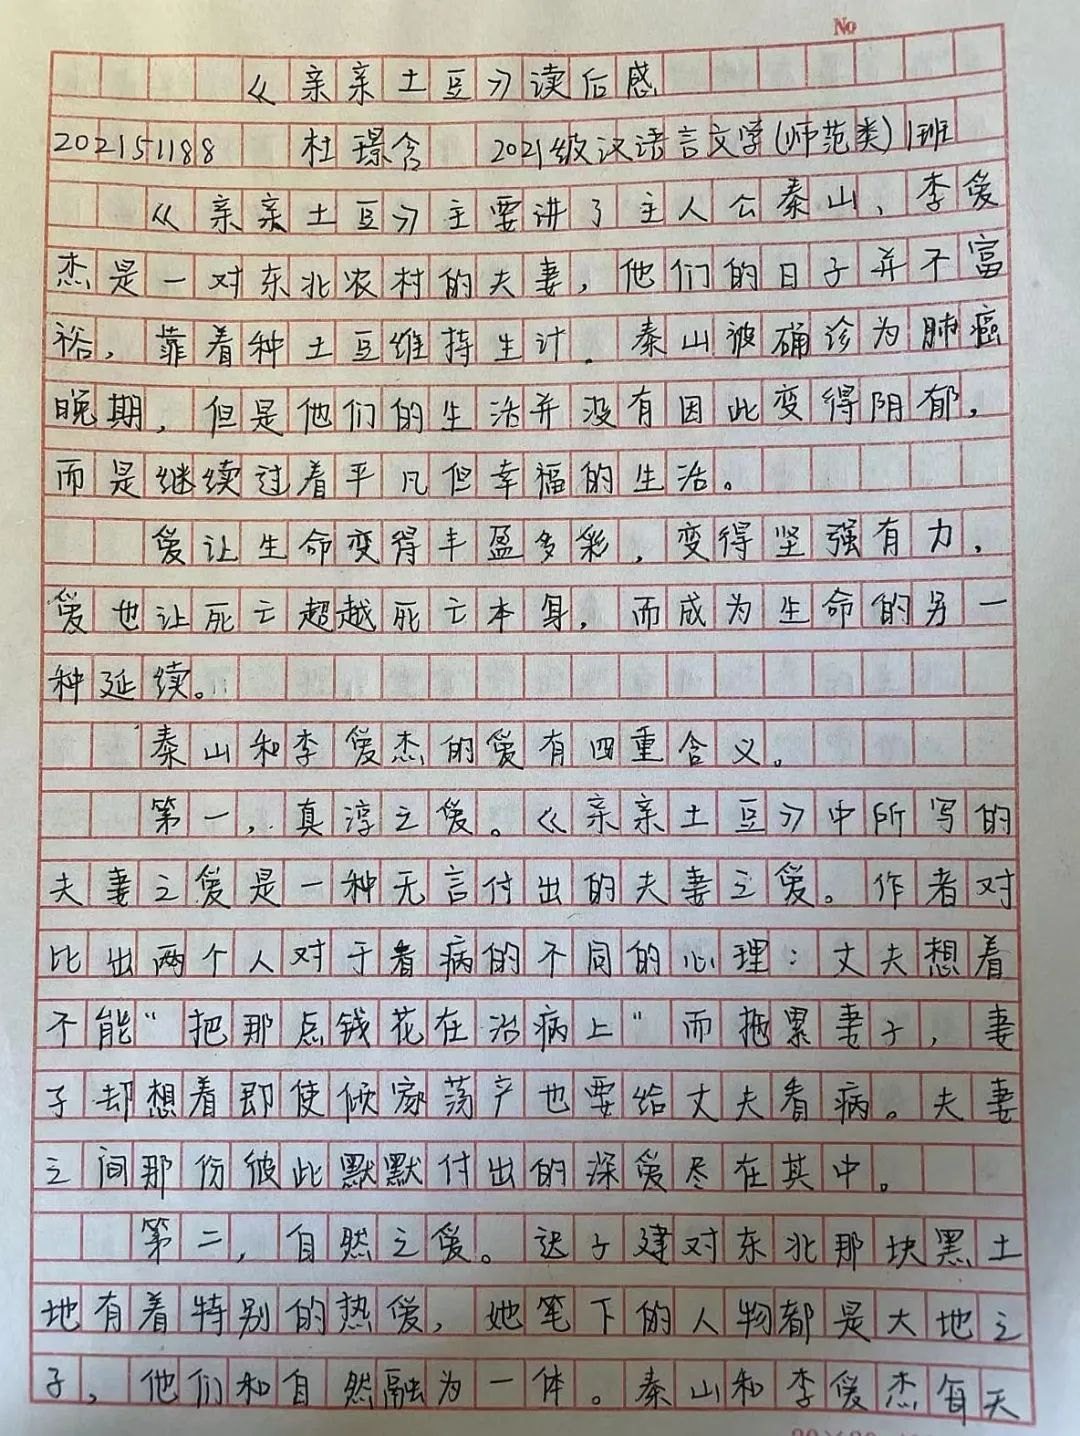 No
《亲亲土豆》读后感
202151188 杜璟含 2021级汉语言文学(师范类)1班
《亲亲土豆》主要讲了主人公秦山、李爱
杰是一对东北农村的夫妻，他们的日子并不富
裕，靠着种土豆维持生计。秦山被确诊为肺癌
晚期，但是他们的生活并没有因此变得阴郁，
而是继续过着平凡但幸福的生活。
爱让生命变得丰盈多彩，变得坚强有力，
爱也让死亡超越死亡本身，而成为生命的另一
种延续。
秦山和李爱杰的爱有四重含义。
第一，真淳之爱。《亲亲土豆》中所写的
夫妻之爱是一种无言付出的夫妻之爱。作者对
比出两个人对于看病的不同的心理：丈夫想着
不能“把那点钱花在治病上”而拖累妻子，妻
子却想着即使倾家荡产也要给丈夫看病。夫妻
之间那份彼此默默付出的深爱尽在其中。
第二，自然之爱。迟子建对东北那块黑土
地有着特别的热爱，她笔下的人物都是大地之
子，他们和自然融为一体。秦山和李爱杰每天